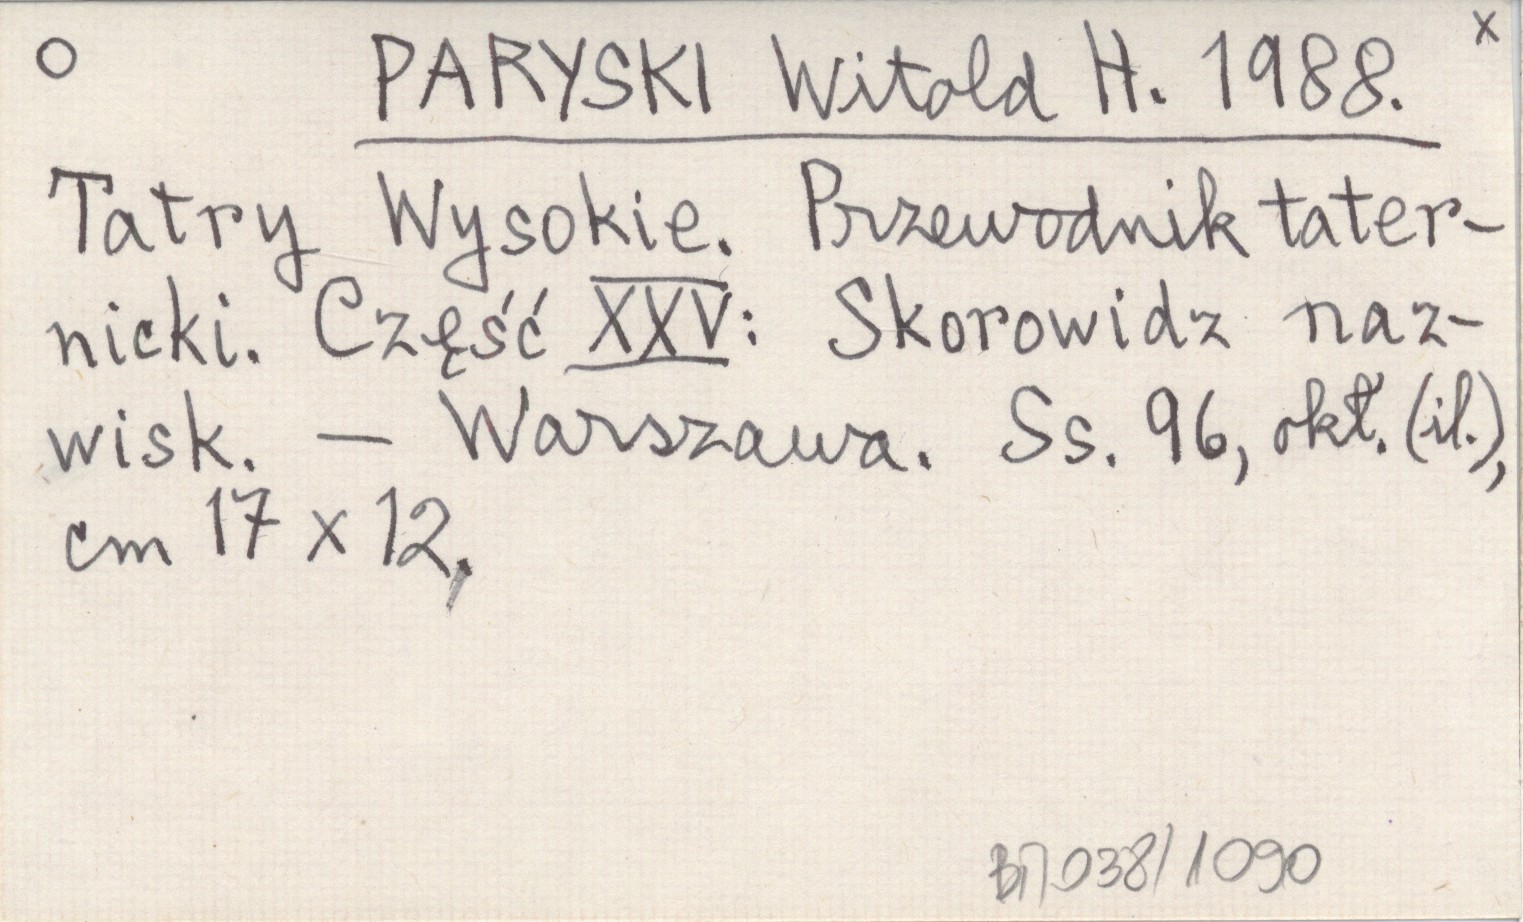 O PARYSKI Witold H. 1988. x
Tatry Wysokie. Przewodnik tater-
nicki. Część XXV: Skorowidz naz-
wisk. — Warszawa. Ss. 96, okł. (il.),
cm 17 x 12.
038/1090